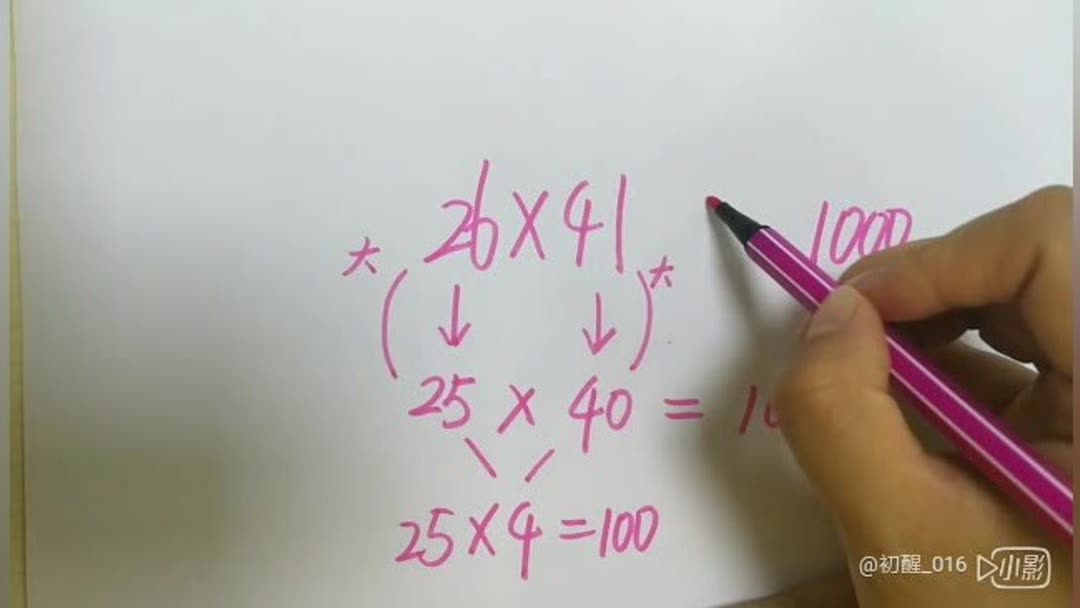 26×41 1000
大 大
25×40=10
25×4=100
@初醒_016 小影